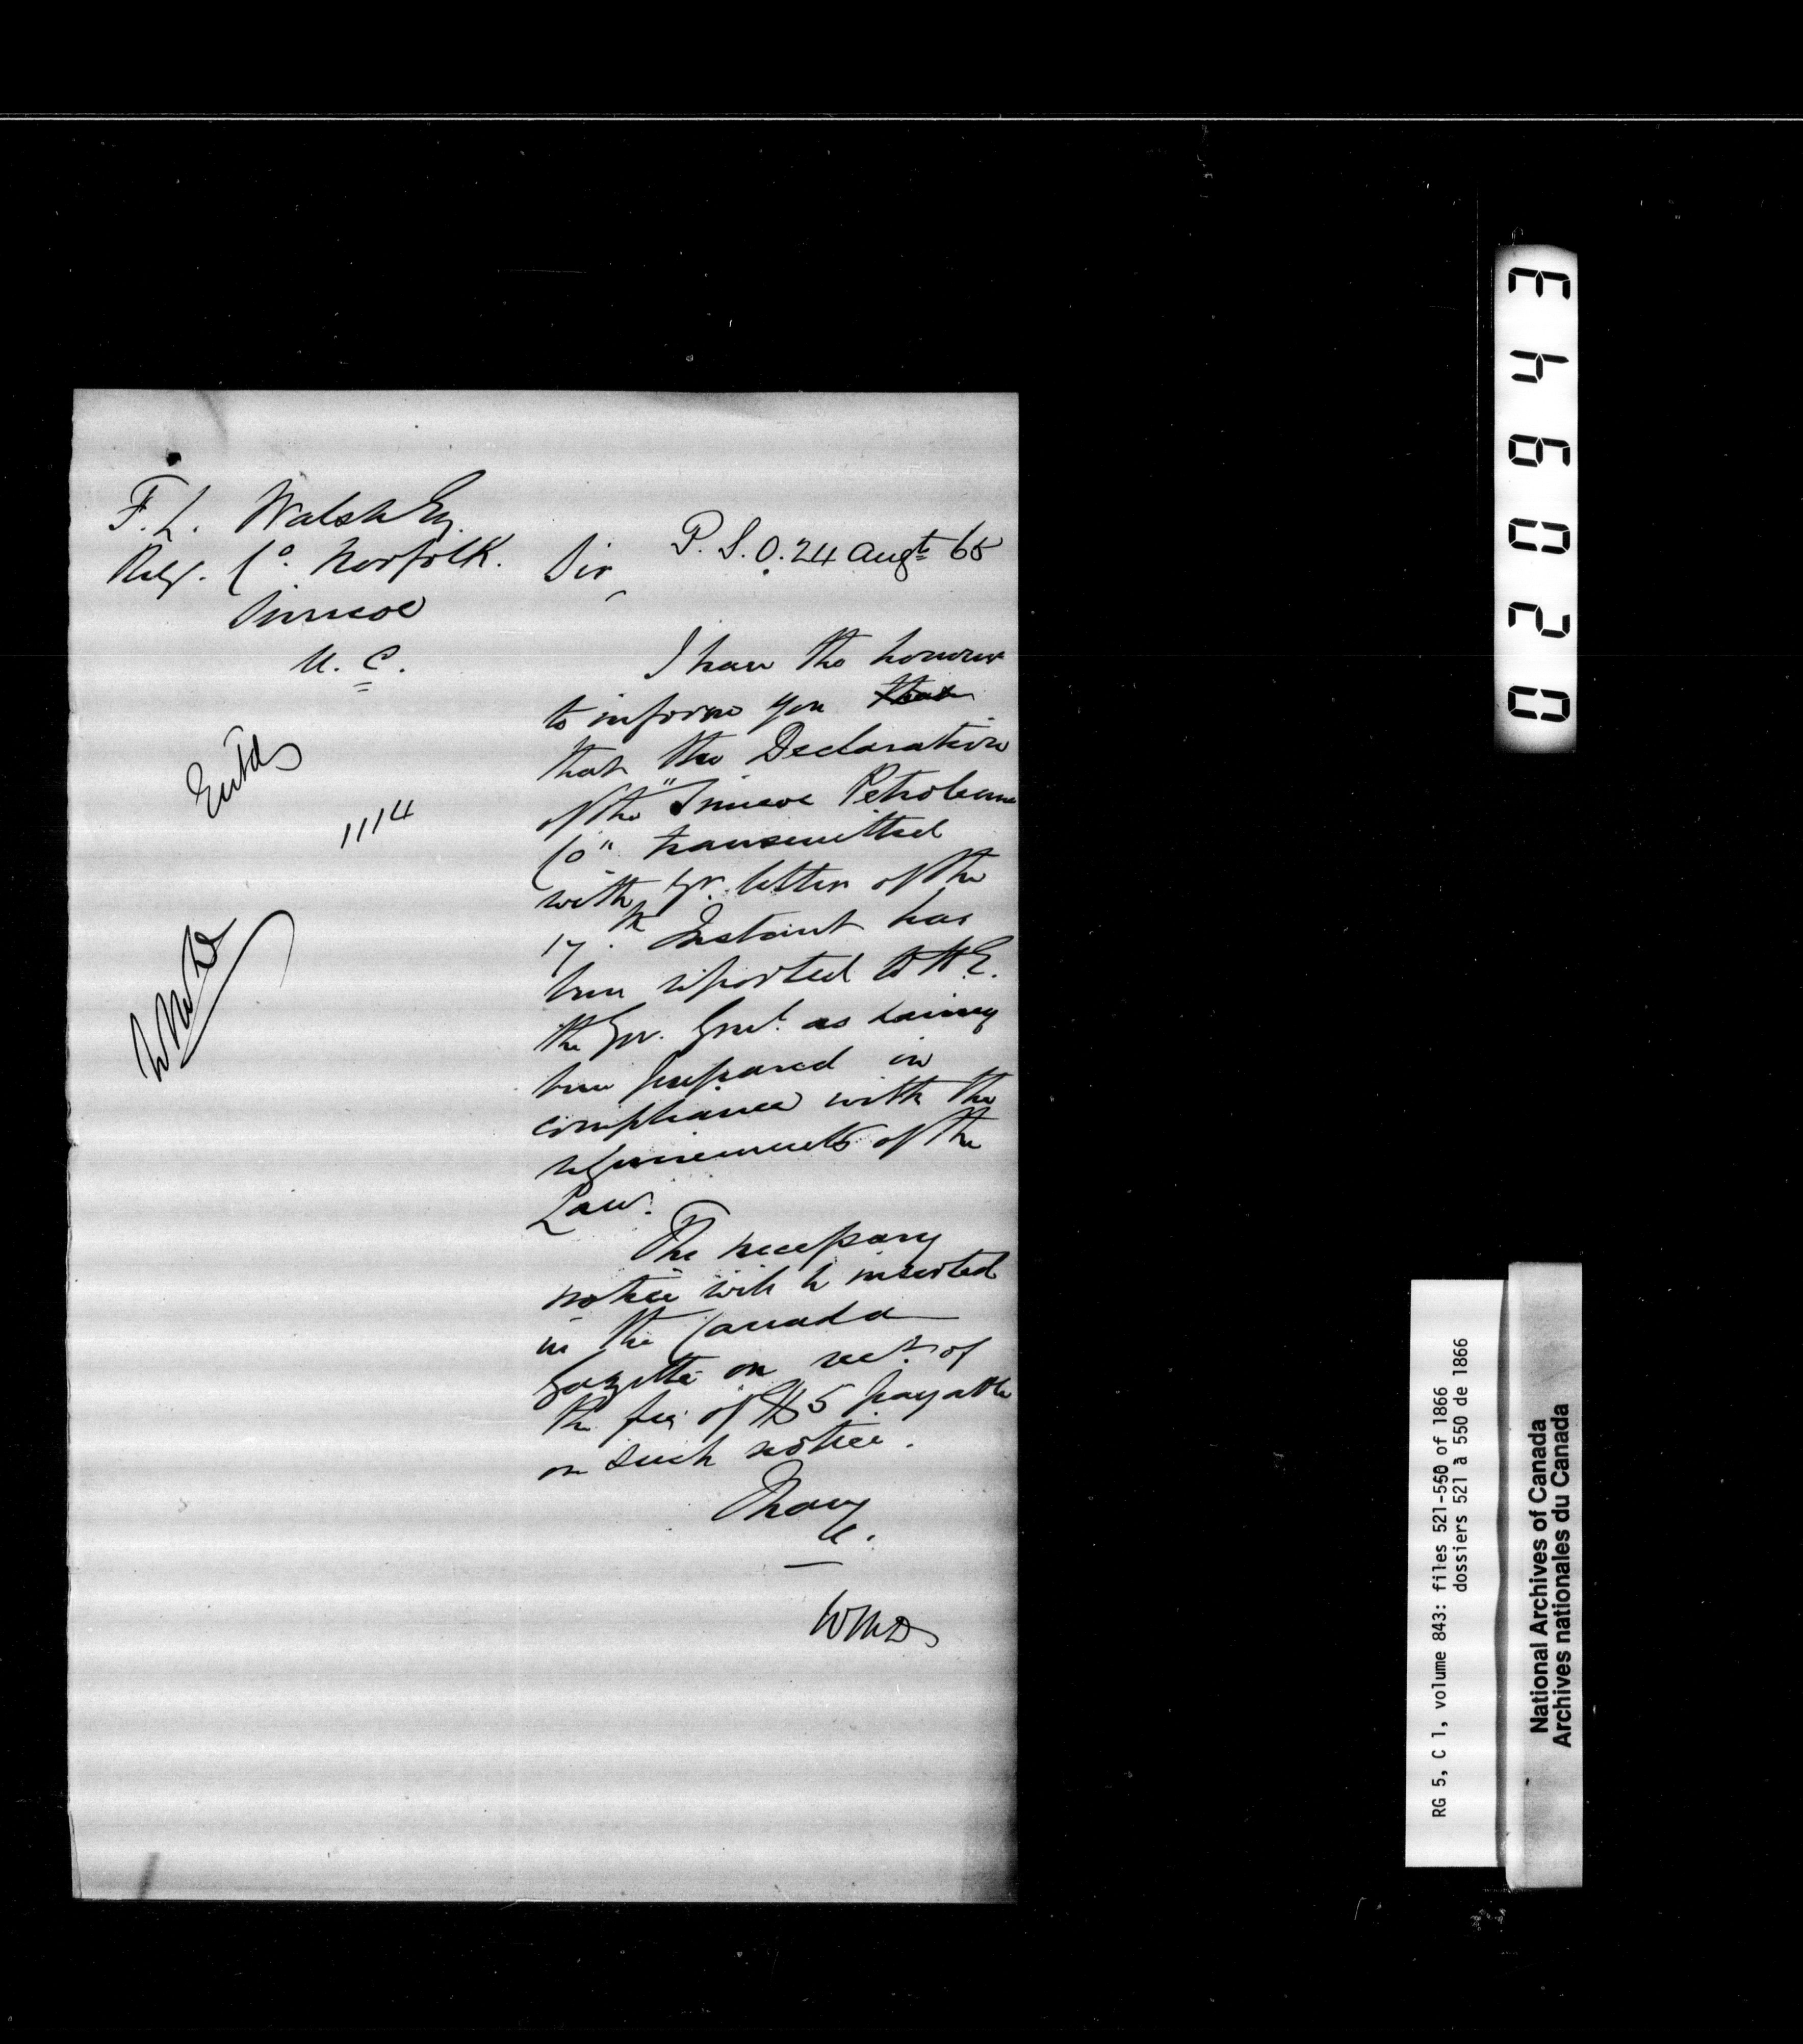 F. L. Walsh Esq.
Reg. Co. Norfolk.
Simcoe
U. C.
Entd
1114
P. S. O. 24 Augt 65
Sir,
I have the honour
to inform you that
that the Declaration
of the "Simcoe Petroleum
Co" transmitted
with yr. letter of the
17th Instant has
been reported to H. E.
the Gov. Genl. as having
been prepared in
compliance with the
requirements of the
Law.
The necessary
notice will be inserted
in the Canada
Gazette on rect. of
the fee of $5 payable
on such notice.
I have
&.
WMD
034920
RG 5, C 1, volume 843: files 521-550 of 1866
dossiers 521 à 550 de 1866
National Archives of Canada
Archives nationales du Canada